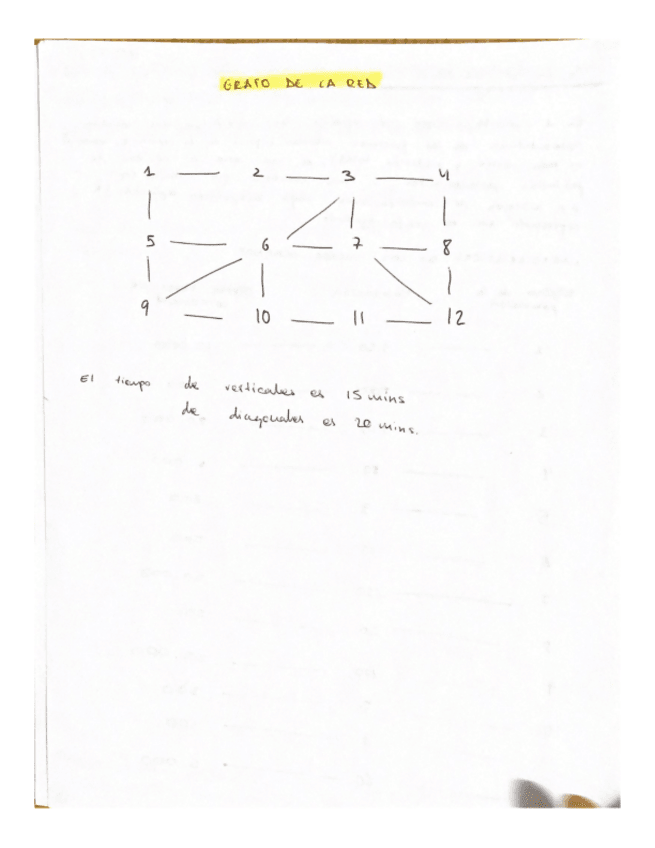 GRAFO DE LA RED
1 2 3 4
5 6 7 8
9 10 11 12
El tiempo de verticales es 15 mins
de diagonales es 20 mins.